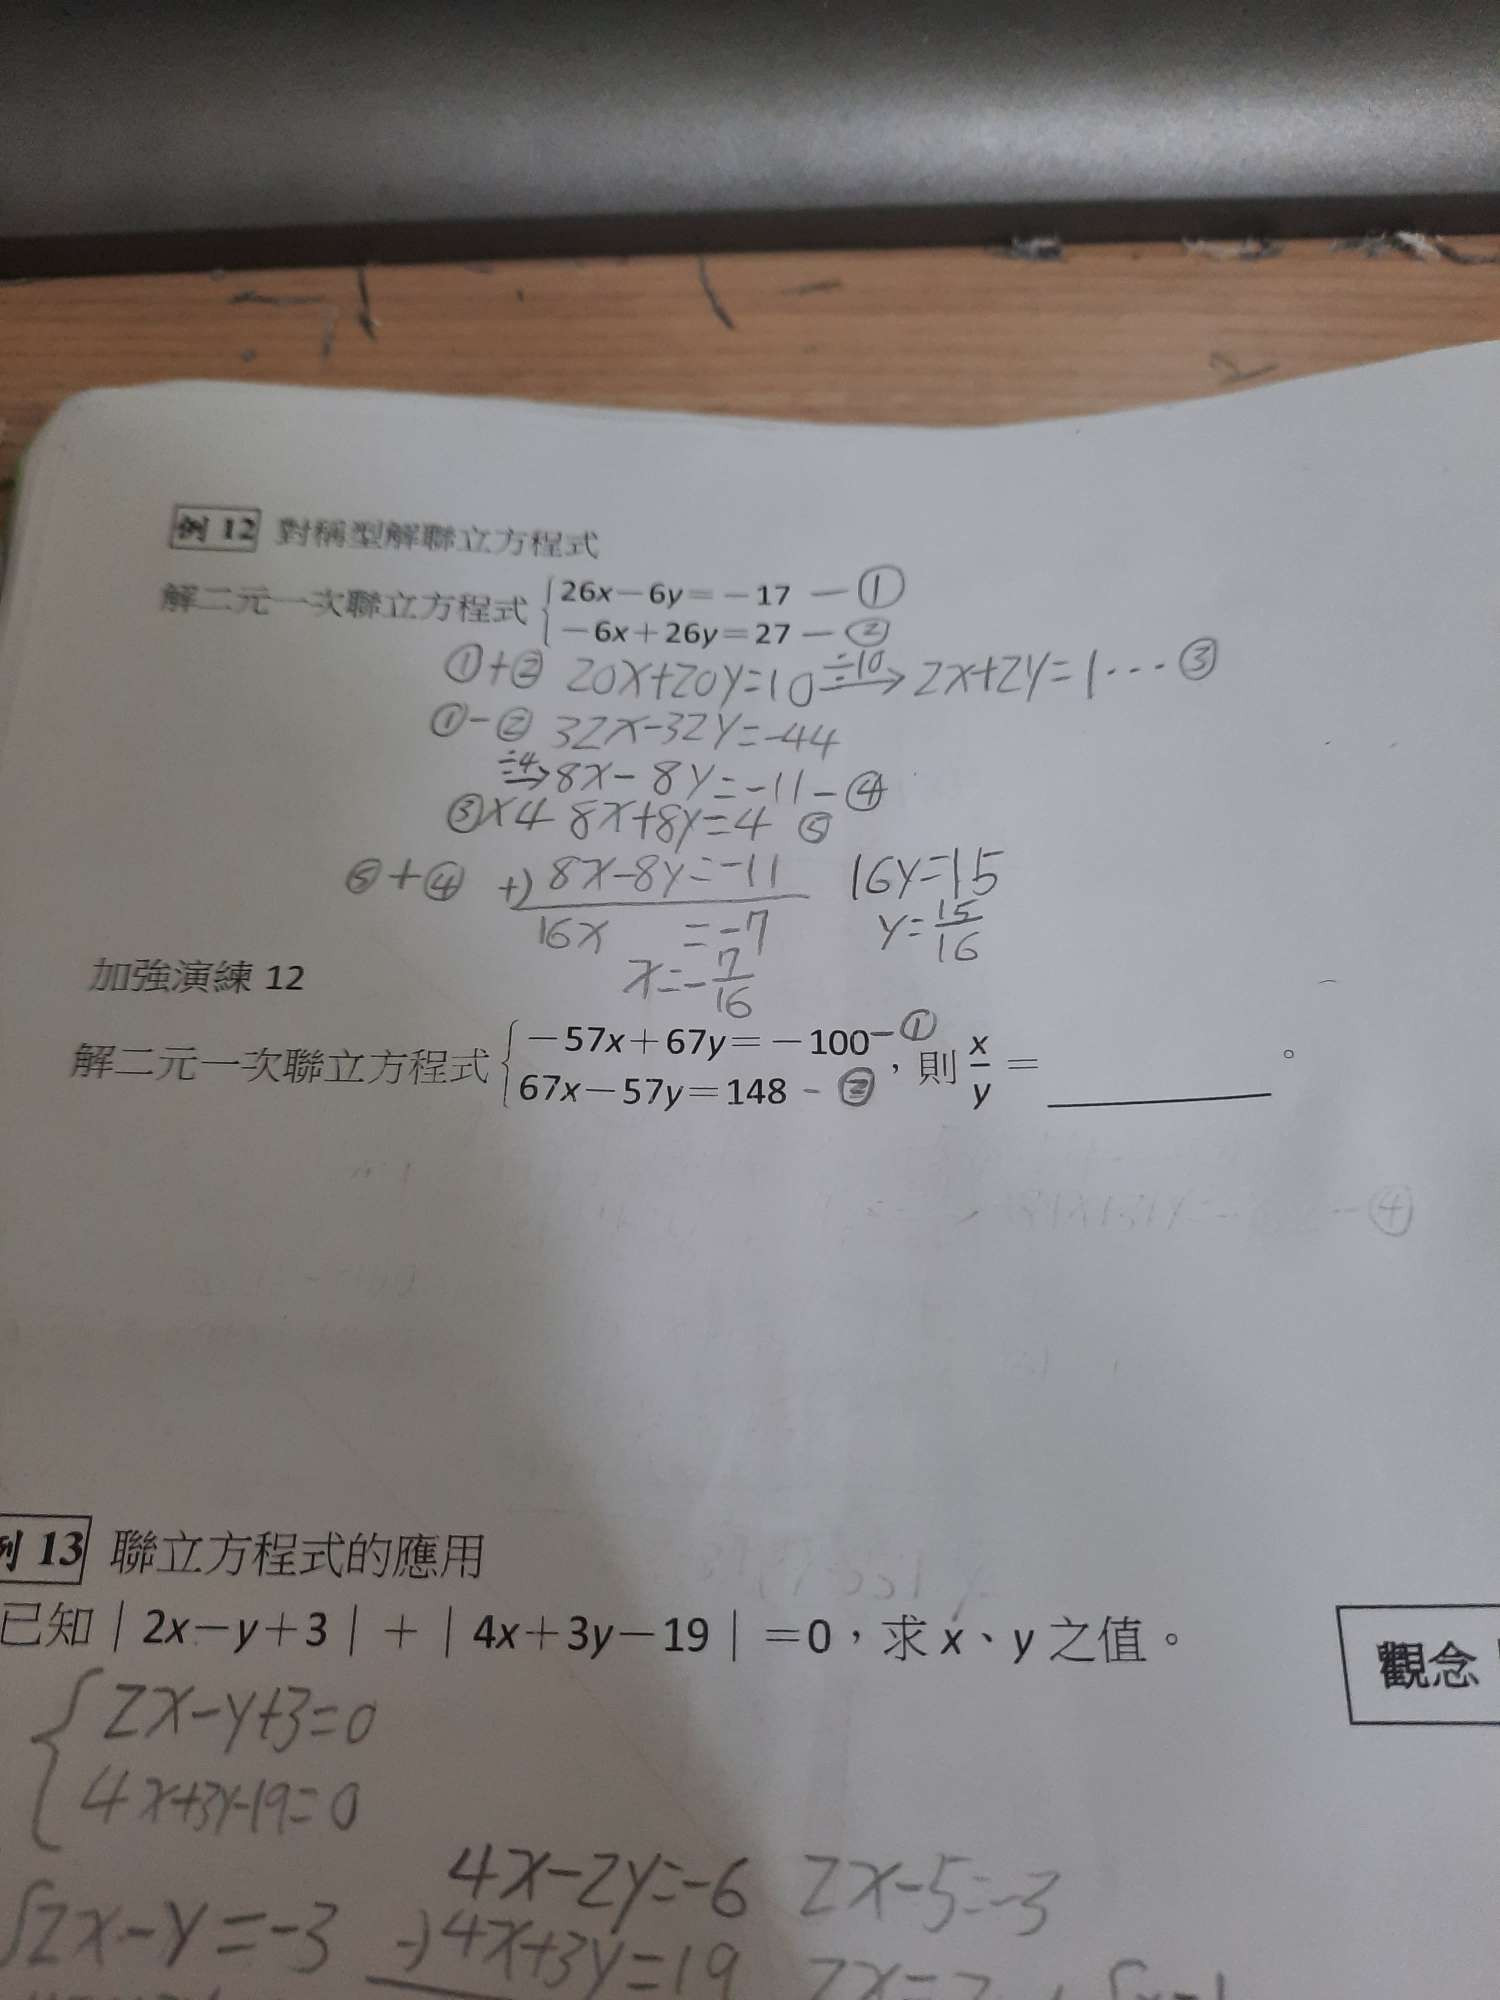 例 12 對稱型解聯立方程式
解二元一次聯立方程式 { 26x－6y＝－17 — ①
－6x＋26y＝27 — ②
①+② 20x+20y=10 ÷10→ 2x+2y=1 … ③
①-② 32x-32y=-44
÷4→ 8x-8y=-11 - ④
③×4 8x+8y=4 ⑤
⑤+④ +) 8x-8y=-11 16y=15
16x =-7 y=15/16
x=-7/16
加強演練 12
解二元一次聯立方程式 { －57x＋67y＝－100 - ①
67x－57y＝148 - ② ，則 x/y ＝ ________ 。
例 13 聯立方程式的應用
已知｜2x－y＋3｜＋｜4x＋3y－19｜＝0，求 x、y 之值。
觀念
{ 2x-y+3=0
4x+3y-19=0
4x-2y=-6 2x-5=-3
{ 2x-y=-3 -) 4x+3y=19